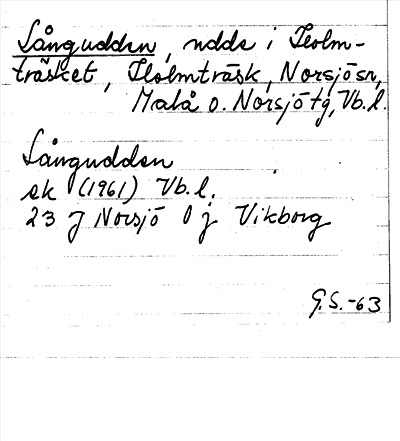 Långudden, udde i Holm-
träsket, Holmträsk, Norsjö sn,
Malå o. Norsjö tg, Vb. l.
Långudden
ek (1961) Vb. l.
23 J Norsjö 0 j Vikborg
G.S. -63